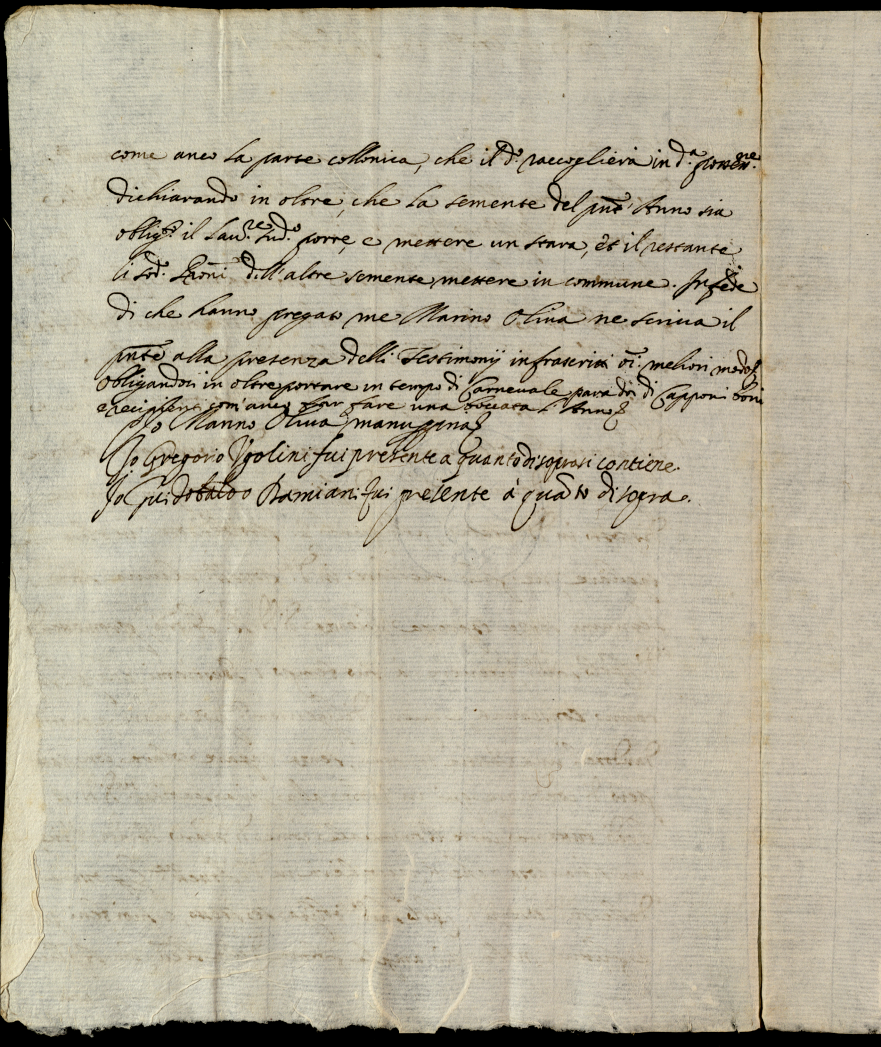 come anco la parte collonica, che il d.º raccoglierà in d.ª
dichiarando in oltre, che la semente del pñte Anno sia
oblig.º il Lau.re sud.º porre, e mettere un stara, et il restante
li sod.i Pŕoni dell'altre semente mettere in commune. In fede
di che hanno pregato me Marino Oliua ne scriua il
pñte alla presenza delli Testimonij infrascritti oi. meliori modo
obligandosi in oltre portare in tempo di Carneuale para doi di Capponi boni
e recipienti com'anco far fare una l'Anno
Io Marino Oliua manu ppria
Io Gregorio Vgolini fui presente a quanto di sopra si contiene.
Io Guidobaldo Damiani fui presente à quãto di sopra.